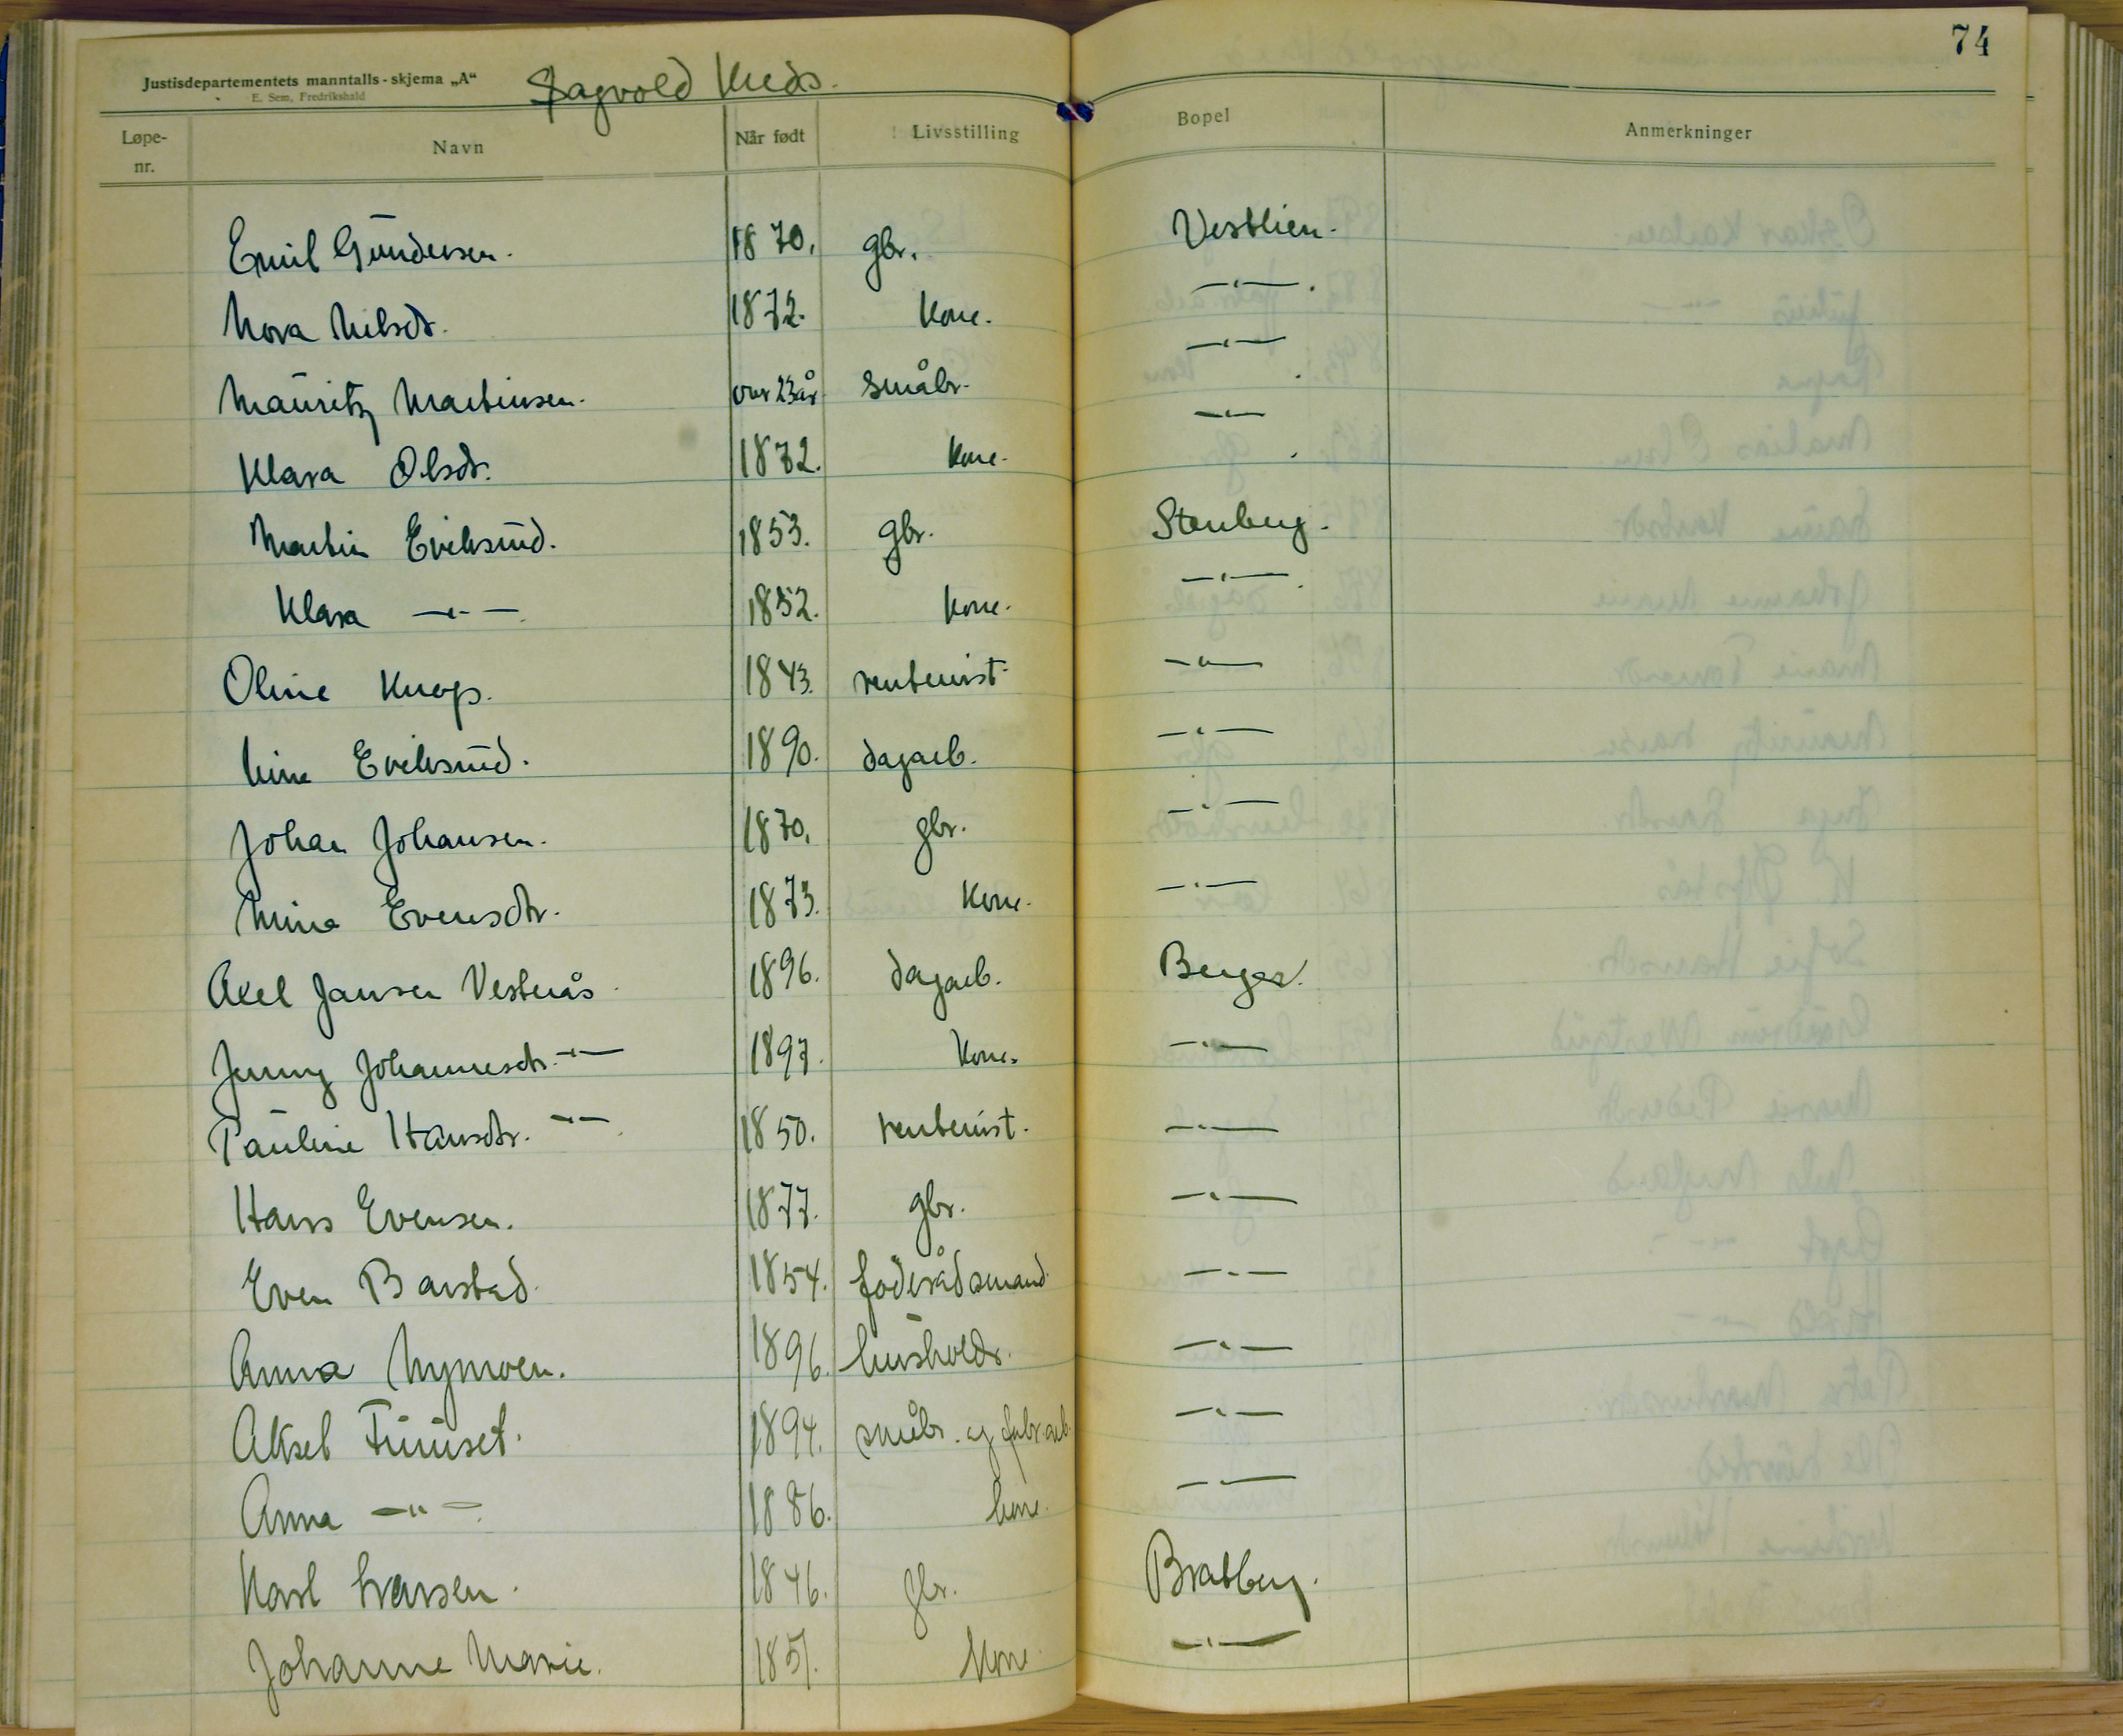 74
Justisdepartementets manntalls-skjema „A“ Sagvold Kreds.
E. Sem, Fredrikshald
Løpe-nr. Navn Når født Livsstilling Bopel Anmerkninger
Emil Gundersen. 1870. gbr. Vestlien.
Nora Nilsdr. 1872. Kone. —"—.
Mauritz Martinsen. over 23 år småbr. —"—
Klara Olsdr. 1872. Kone. —"—
Martin Eriksrud. 1853. gbr. Stenberg.
Klara —"— 1852. Kone. —"—
Oline Knops. 1843. rentenist —"—
Line Eriksrud. 1890. dagarb. —"—
Johan Johansen. 1870. gbr. —"—
Mina Evensdtr. 1873. Kone. —"—
Axel Jansen Vestenås 1896. dagarb. Berger.
Jenny Johannesdtr. —"— 1897. Kone. —"—
Pauline Hansdtr. —"— 1850. rentenist. —"—
Hans Evensen. 1877. gbr. —"—
Even Barstad 1854. föderådsmand. —"—
Anna Nymoen. 1896. husholdr. —"—
Aksel Furuset. 1894. småbr. og fabr.arb. —"—
Anna —"— 1886. kone. —"—
Karl Larsen. 1846. gbr. Bratberg.
Johanne Marie. 1851. Kone —"—